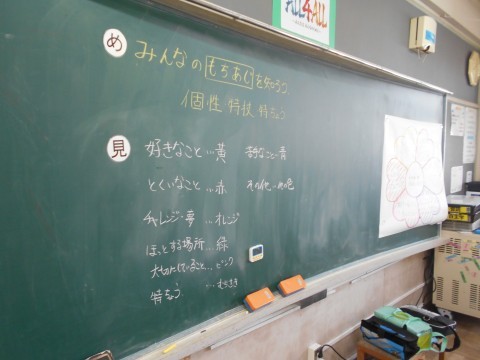 ALL4ALL
め みんなの もちあじ を知ろう。
個性 特技 特ちょう
見 好きなこと…黄 苦手なこと…青
とくいなこと…赤 その他…他の色
チャレンジ・夢…オレンジ
ほっとする場所…緑
大切にしていること…ピンク
特ちょう …むらさき